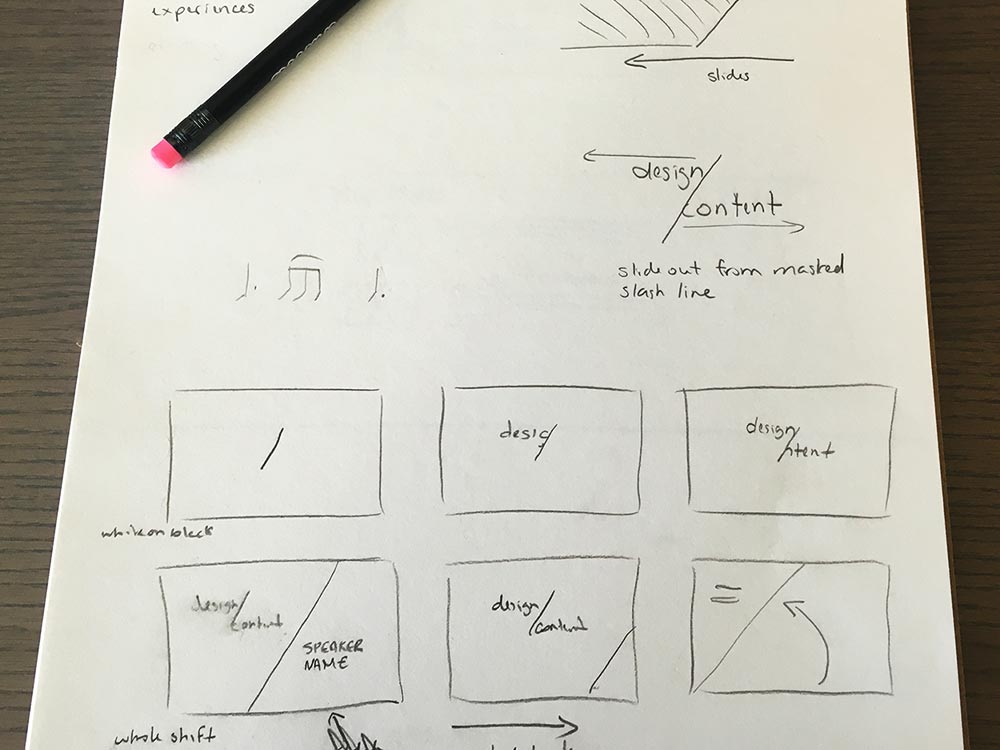 experiences
slides
design
content
slide out from masked
slash line
/
desig/
design/
ntent
white on black
design/
content
SPEAKER
NAME
design/
content
whole shift